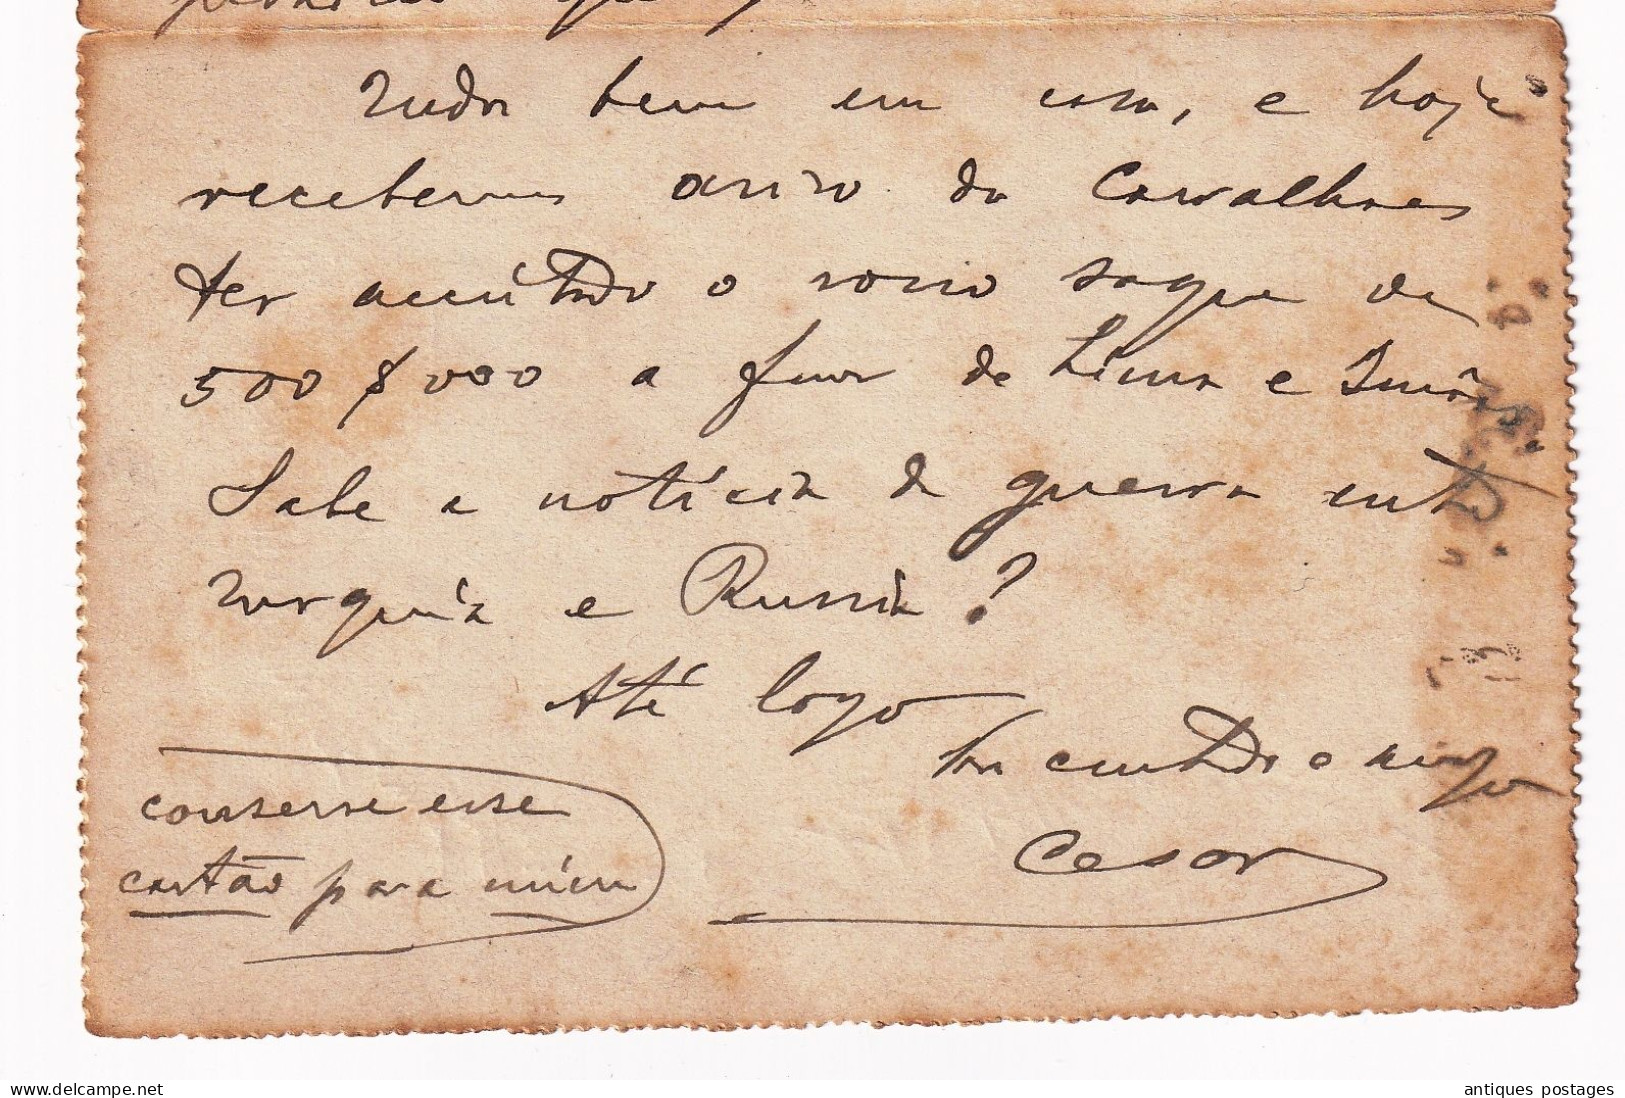 Tudo bem em casa, e hoje
recebemos aviso do Carvalhaes
ter acceitado o nosso saque de
500$000 a favor de Lima e Irmãos.
Sabe a noticia da guerra entre
Turquia e Russia?
Até logo
cunhado e amigo
Cesar
conserve esse
cartão para mim
delcampe.net
antiques postages